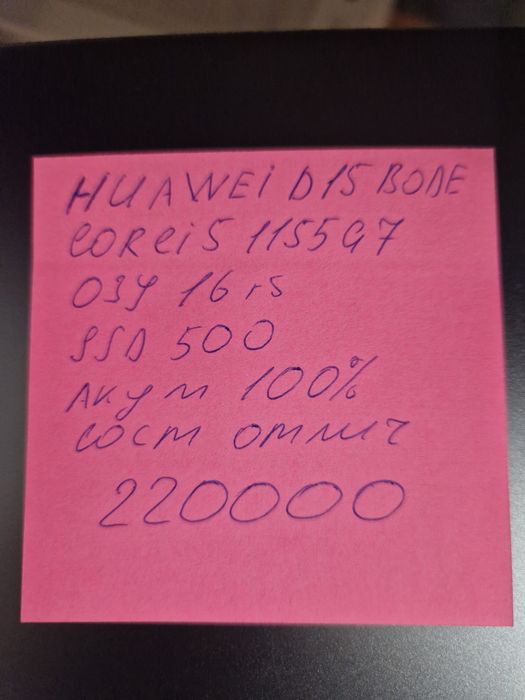 HUAWEi D15 BODE
CORE i5 1155G7
ОЗУ 16 гб
SSD 500
Акум 100%
сост отлич
220000